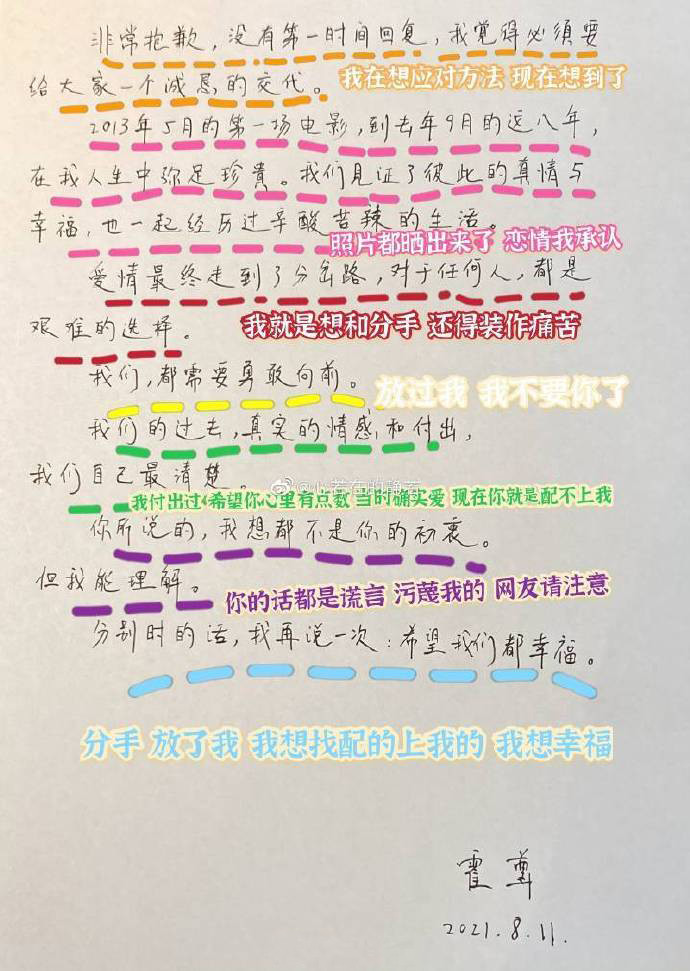 非常抱歉，没有第一时间回复，我觉得必须要
给大家一个诚恳的交代。 我在想应对方法 现在想到了
2013年5月的第一场电影，到去年9月的近八年，
在我人生中弥足珍贵。我们见证了彼此的真情与
幸福，也一起经历过辛酸苦辣的生活。
照片都晒出来了 恋情我承认
爱情最终走到了分岔路，对于任何人，都是
艰难的选择。 我就是想和分手 还得装作痛苦
我们，都需要勇敢向前。 放过我 我不要你了
我们的过去，真实的情感和付出，
我们自己最清楚。
我付出过 希望你心里有点数 当时确实爱 现在你就是配不上我
你所说的，我想都不是你的初衷。
但我能理解。 你的话都是谎言 污蔑我的 网友请注意
分别时的话，我再说一次：希望我们都幸福。
分手 放了我 我想找配的上我的 我想幸福
霍尊
2021.8.11.